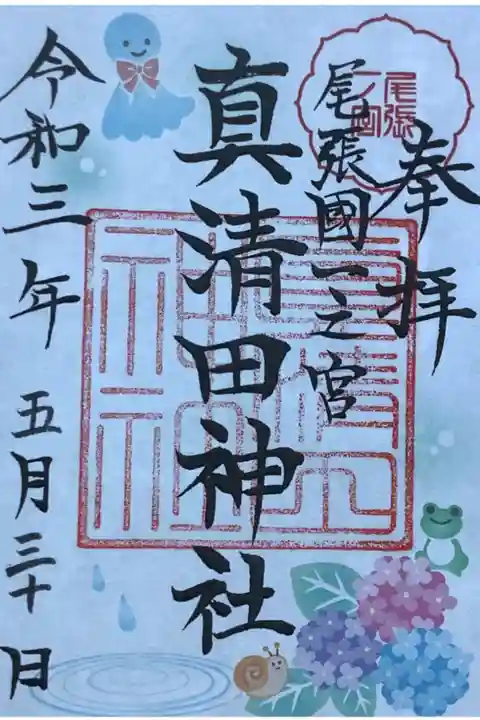 奉拝
尾張
一ノ宮
尾張國一之宮
真清田神社
令和三年 五月三十日